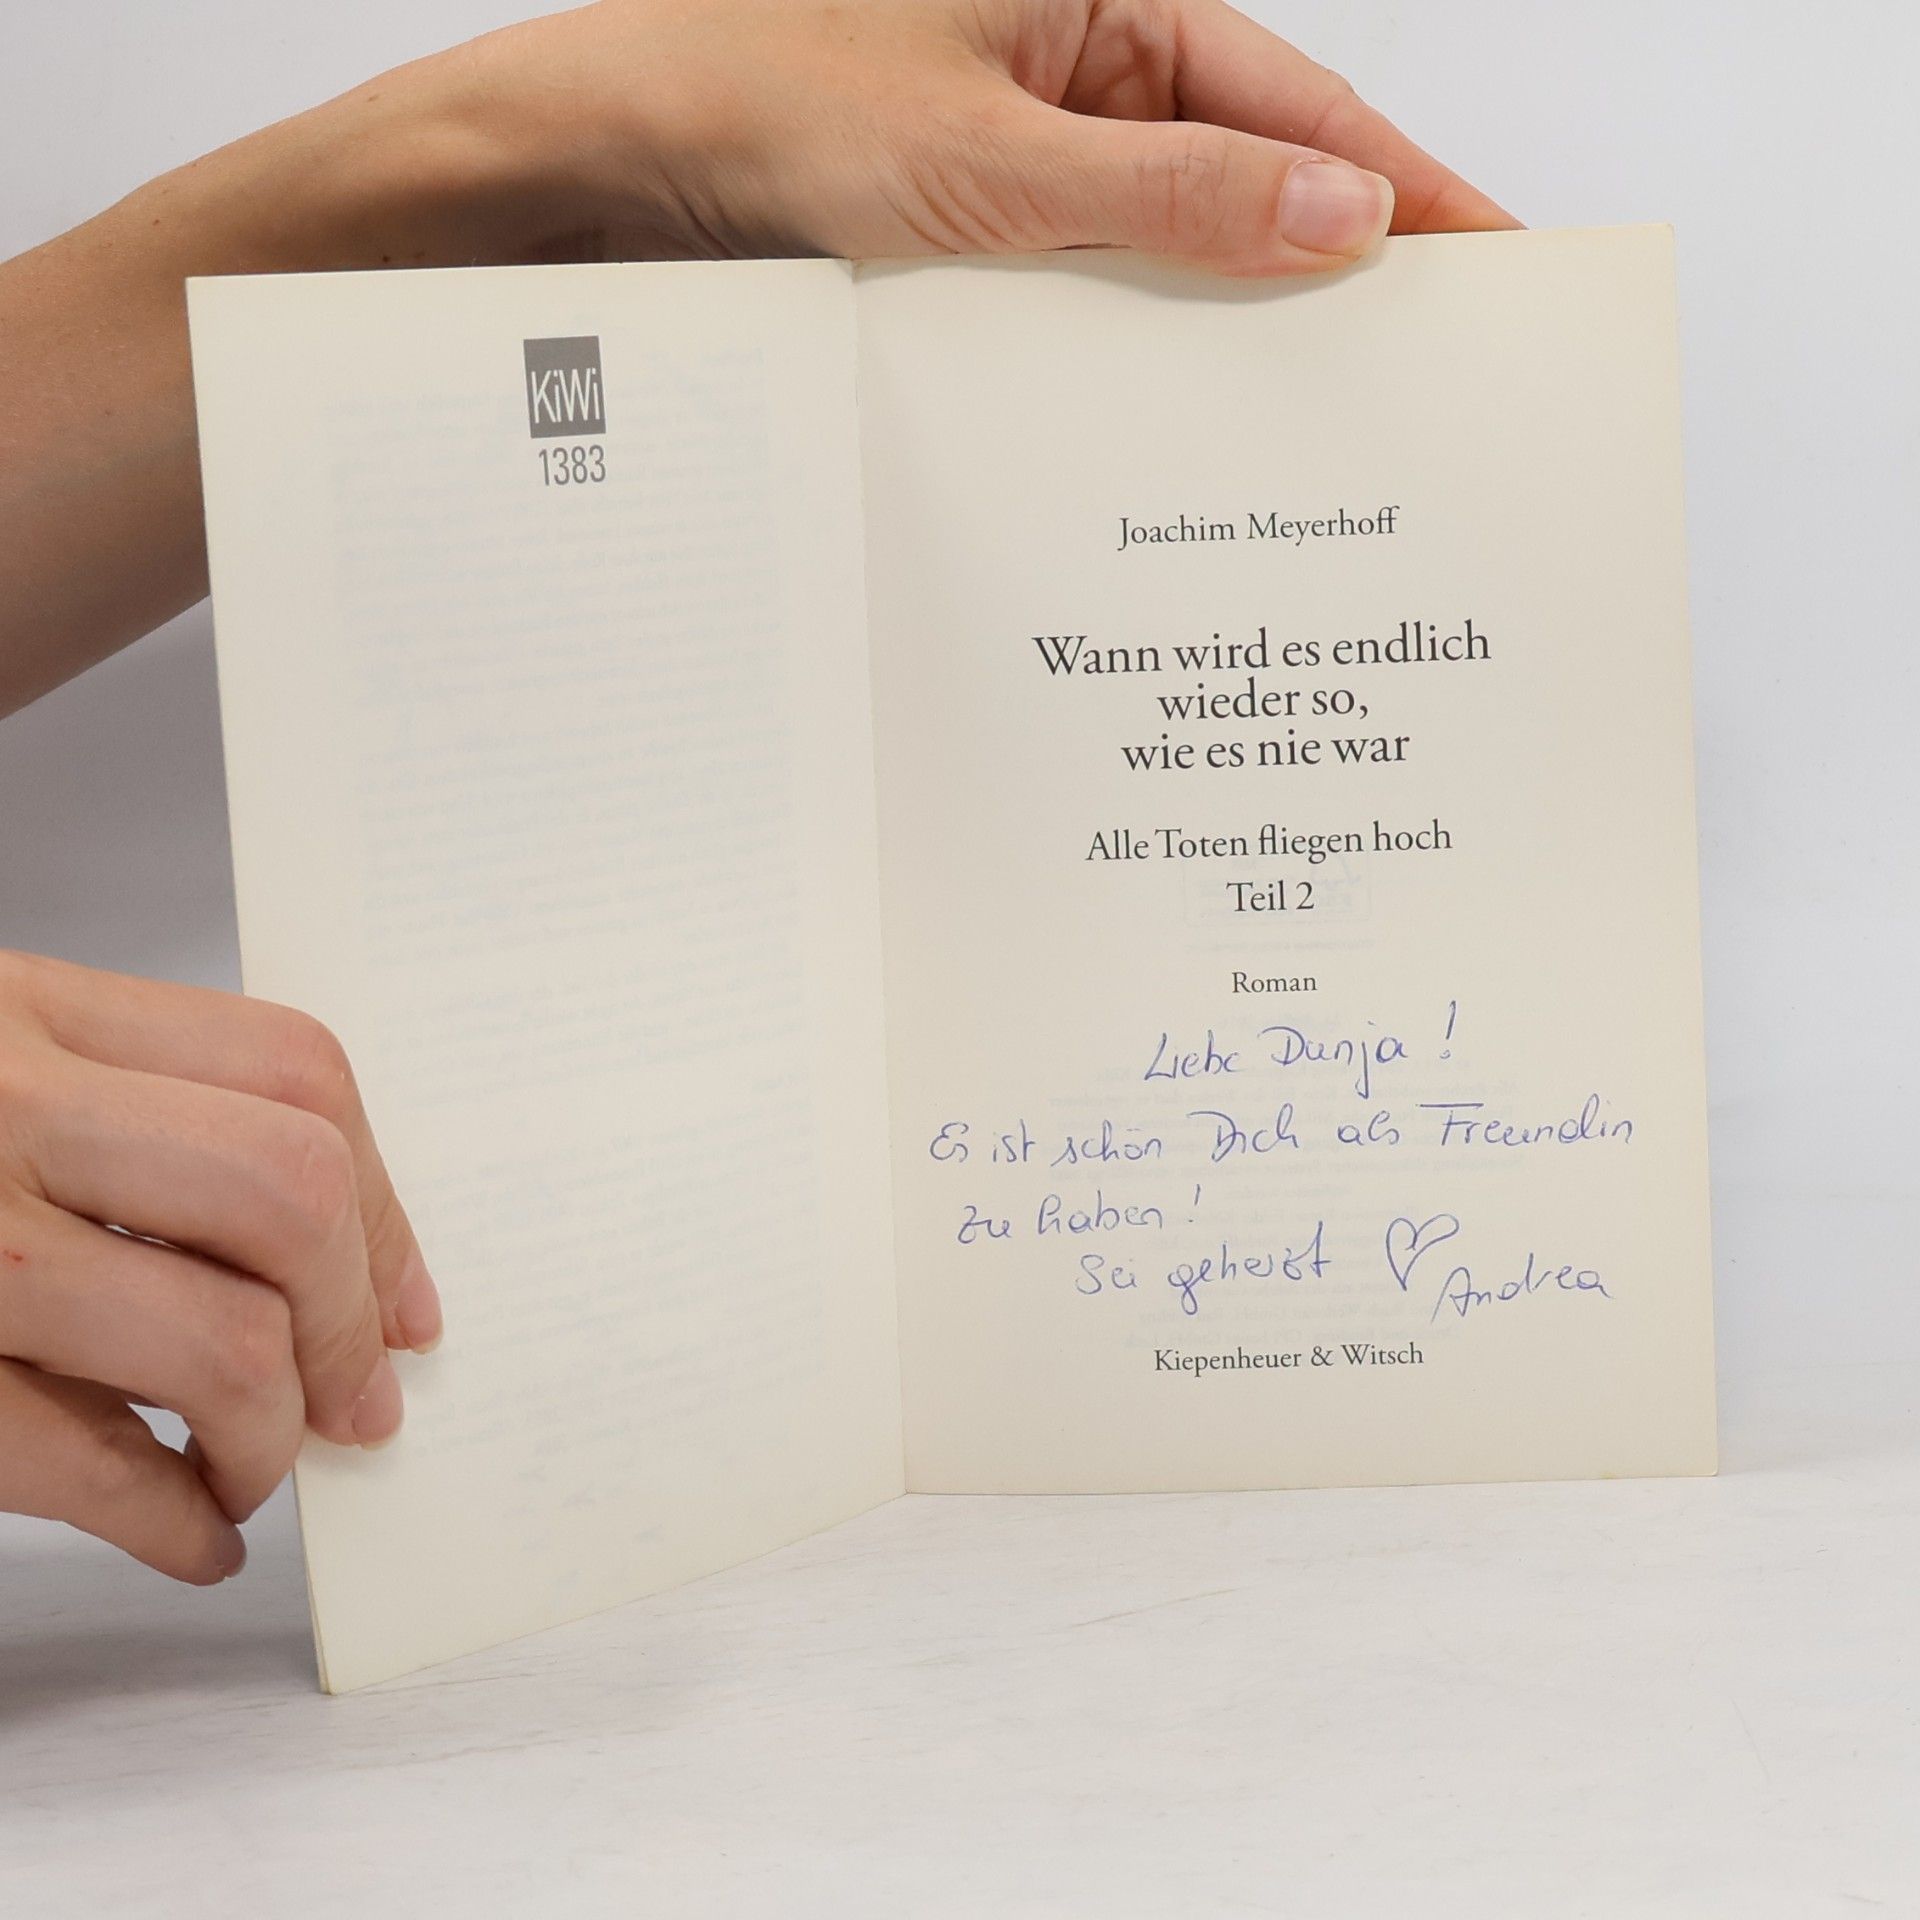 KiWi
1383
Joachim Meyerhoff
Wann wird es endlich
wieder so,
wie es nie war
Alle Toten fliegen hoch
Teil 2
Roman
Liebe Dunja!
Es ist schön Dich als Freundin
zu haben!
Sei geherzt ♡ Andrea
Kiepenheuer & Witsch